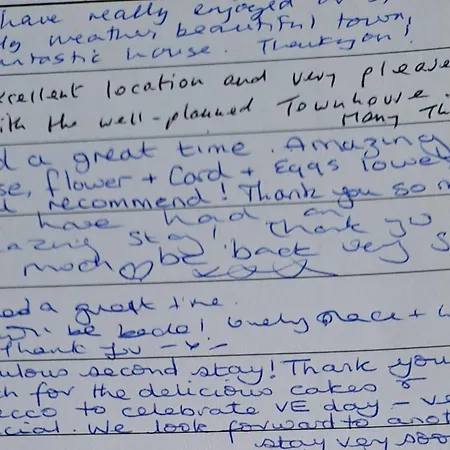 have really enjoyed
weather, beautiful town,
house. Thankyou!
location and very
with the well-planned Townhouse
Many
a great time. Amazing
flower + Card + Eggs
recommend! Thank you so
have had an
stay! Thank you
much be back very
a great time.
be back! lovely place +
Thank you -x-
second stay! Thank you
for the delicious cakes &
to celebrate VE day - ve
We look forward to
stay very soo